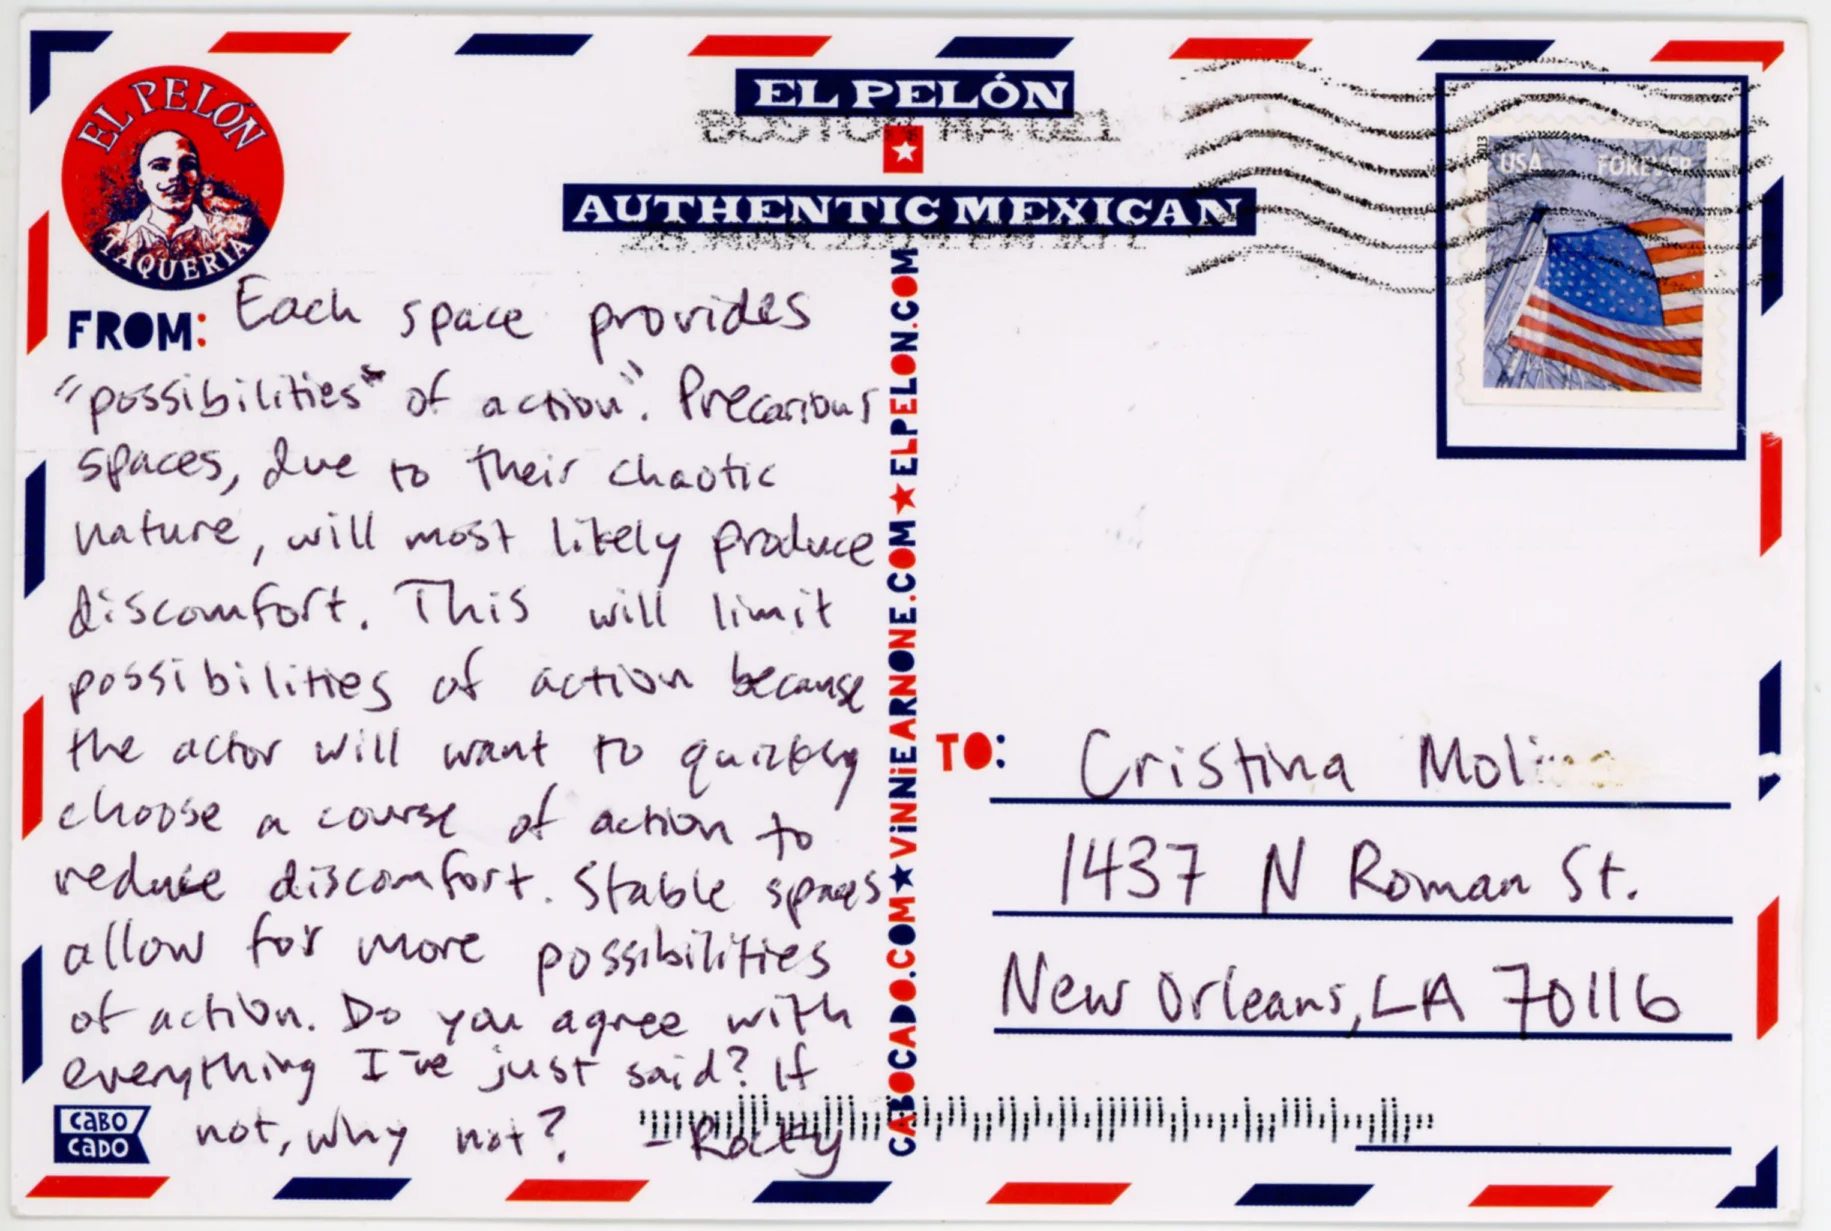 EL PELÓN
TAQUERIA
EL PELÓN
BOSTON MA 021
AUTHENTIC MEXICAN
USA FOREVER
2013
FROM:
Each space provides
"possibilities of action". Precarious
spaces, due to their chaotic
nature, will most likely produce
discomfort. This will limit
possibilities of action because
the actor will want to quickly
choose a course of action to
reduce discomfort. Stable spaces
allow for more possibilities
of action. Do you agree with
everything I've just said? If
not, why not? - Rocky
CABO
CADO
CABOCADO.COM★VINNIEARNONE.COM★ELPELON.COM
TO: Cristina
1437 N Roman St.
New Orleans, LA 70116